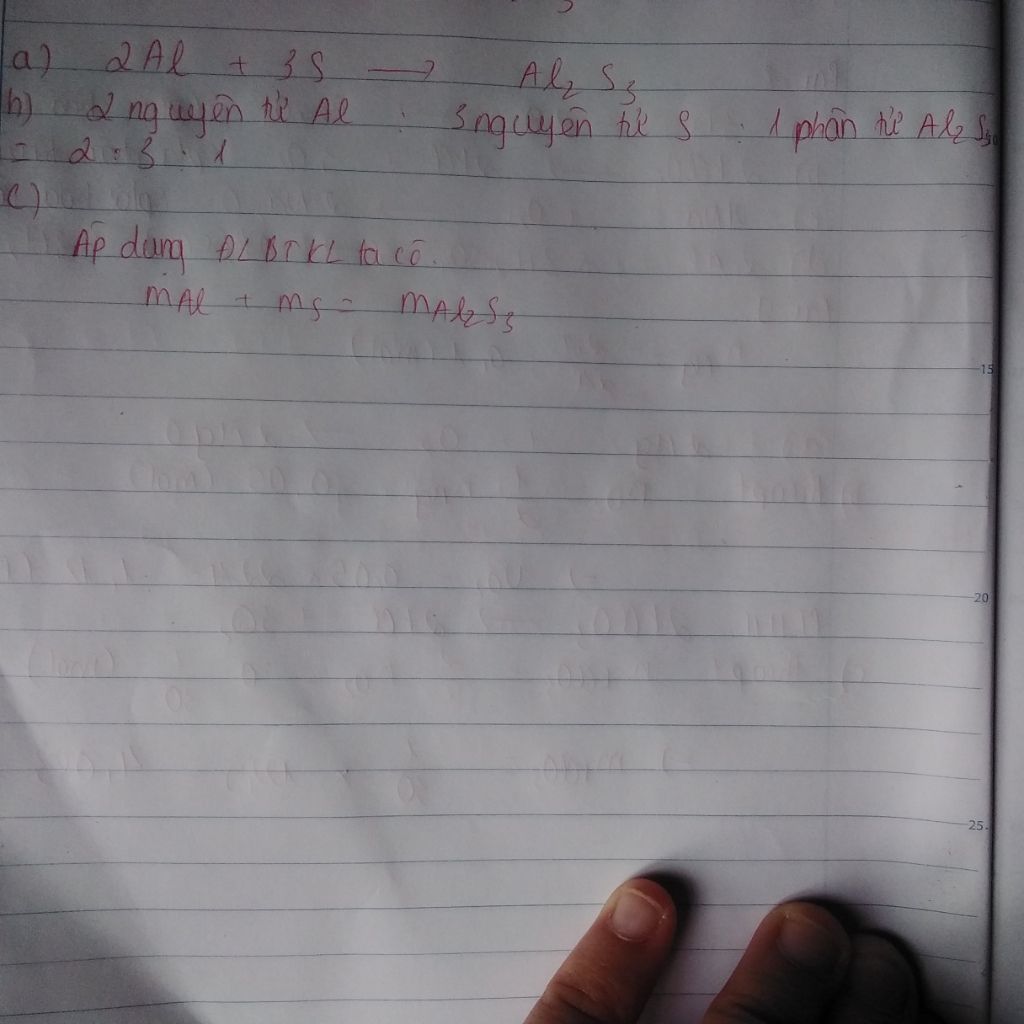 a) 2Al + 3S → Al₂S₃
b) 2 nguyên tử Al : 3 nguyên tử S : 1 phân tử Al₂S₃
= 2 : 3 : 1
c)
Áp dụng ĐLBTKL ta có.
mAl + mS = mAl₂S₃
15
20
25